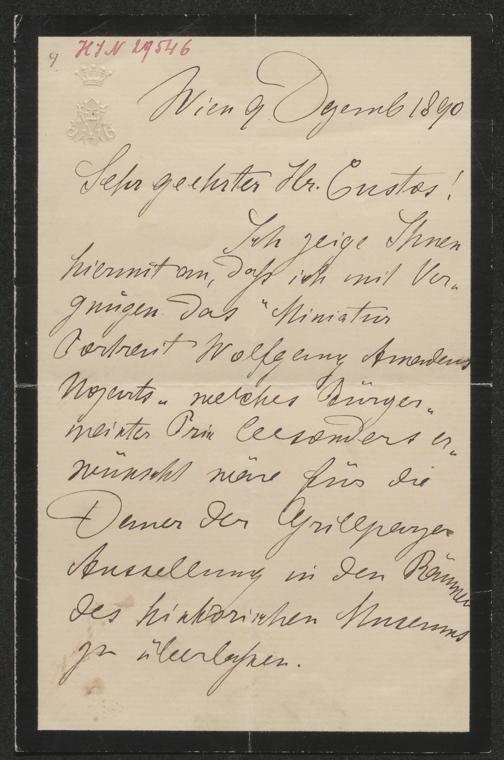 9 HIN 29546
Wien 9 Dezemb 1890
Sehr geehrter Hr. Custos!
Ich zeige Ihnen
hiermit an, daß ich mit Ver„
gnügen das "Miniatur
Portrait Wolfgang Amadeus
Mozarts„ welches Bürger„
meister Prix besonders er„
wünscht wäre für die
Dauer der Grillparzer
Ausstellung in den Räumen
des historischen Museums
zu überlaßen.